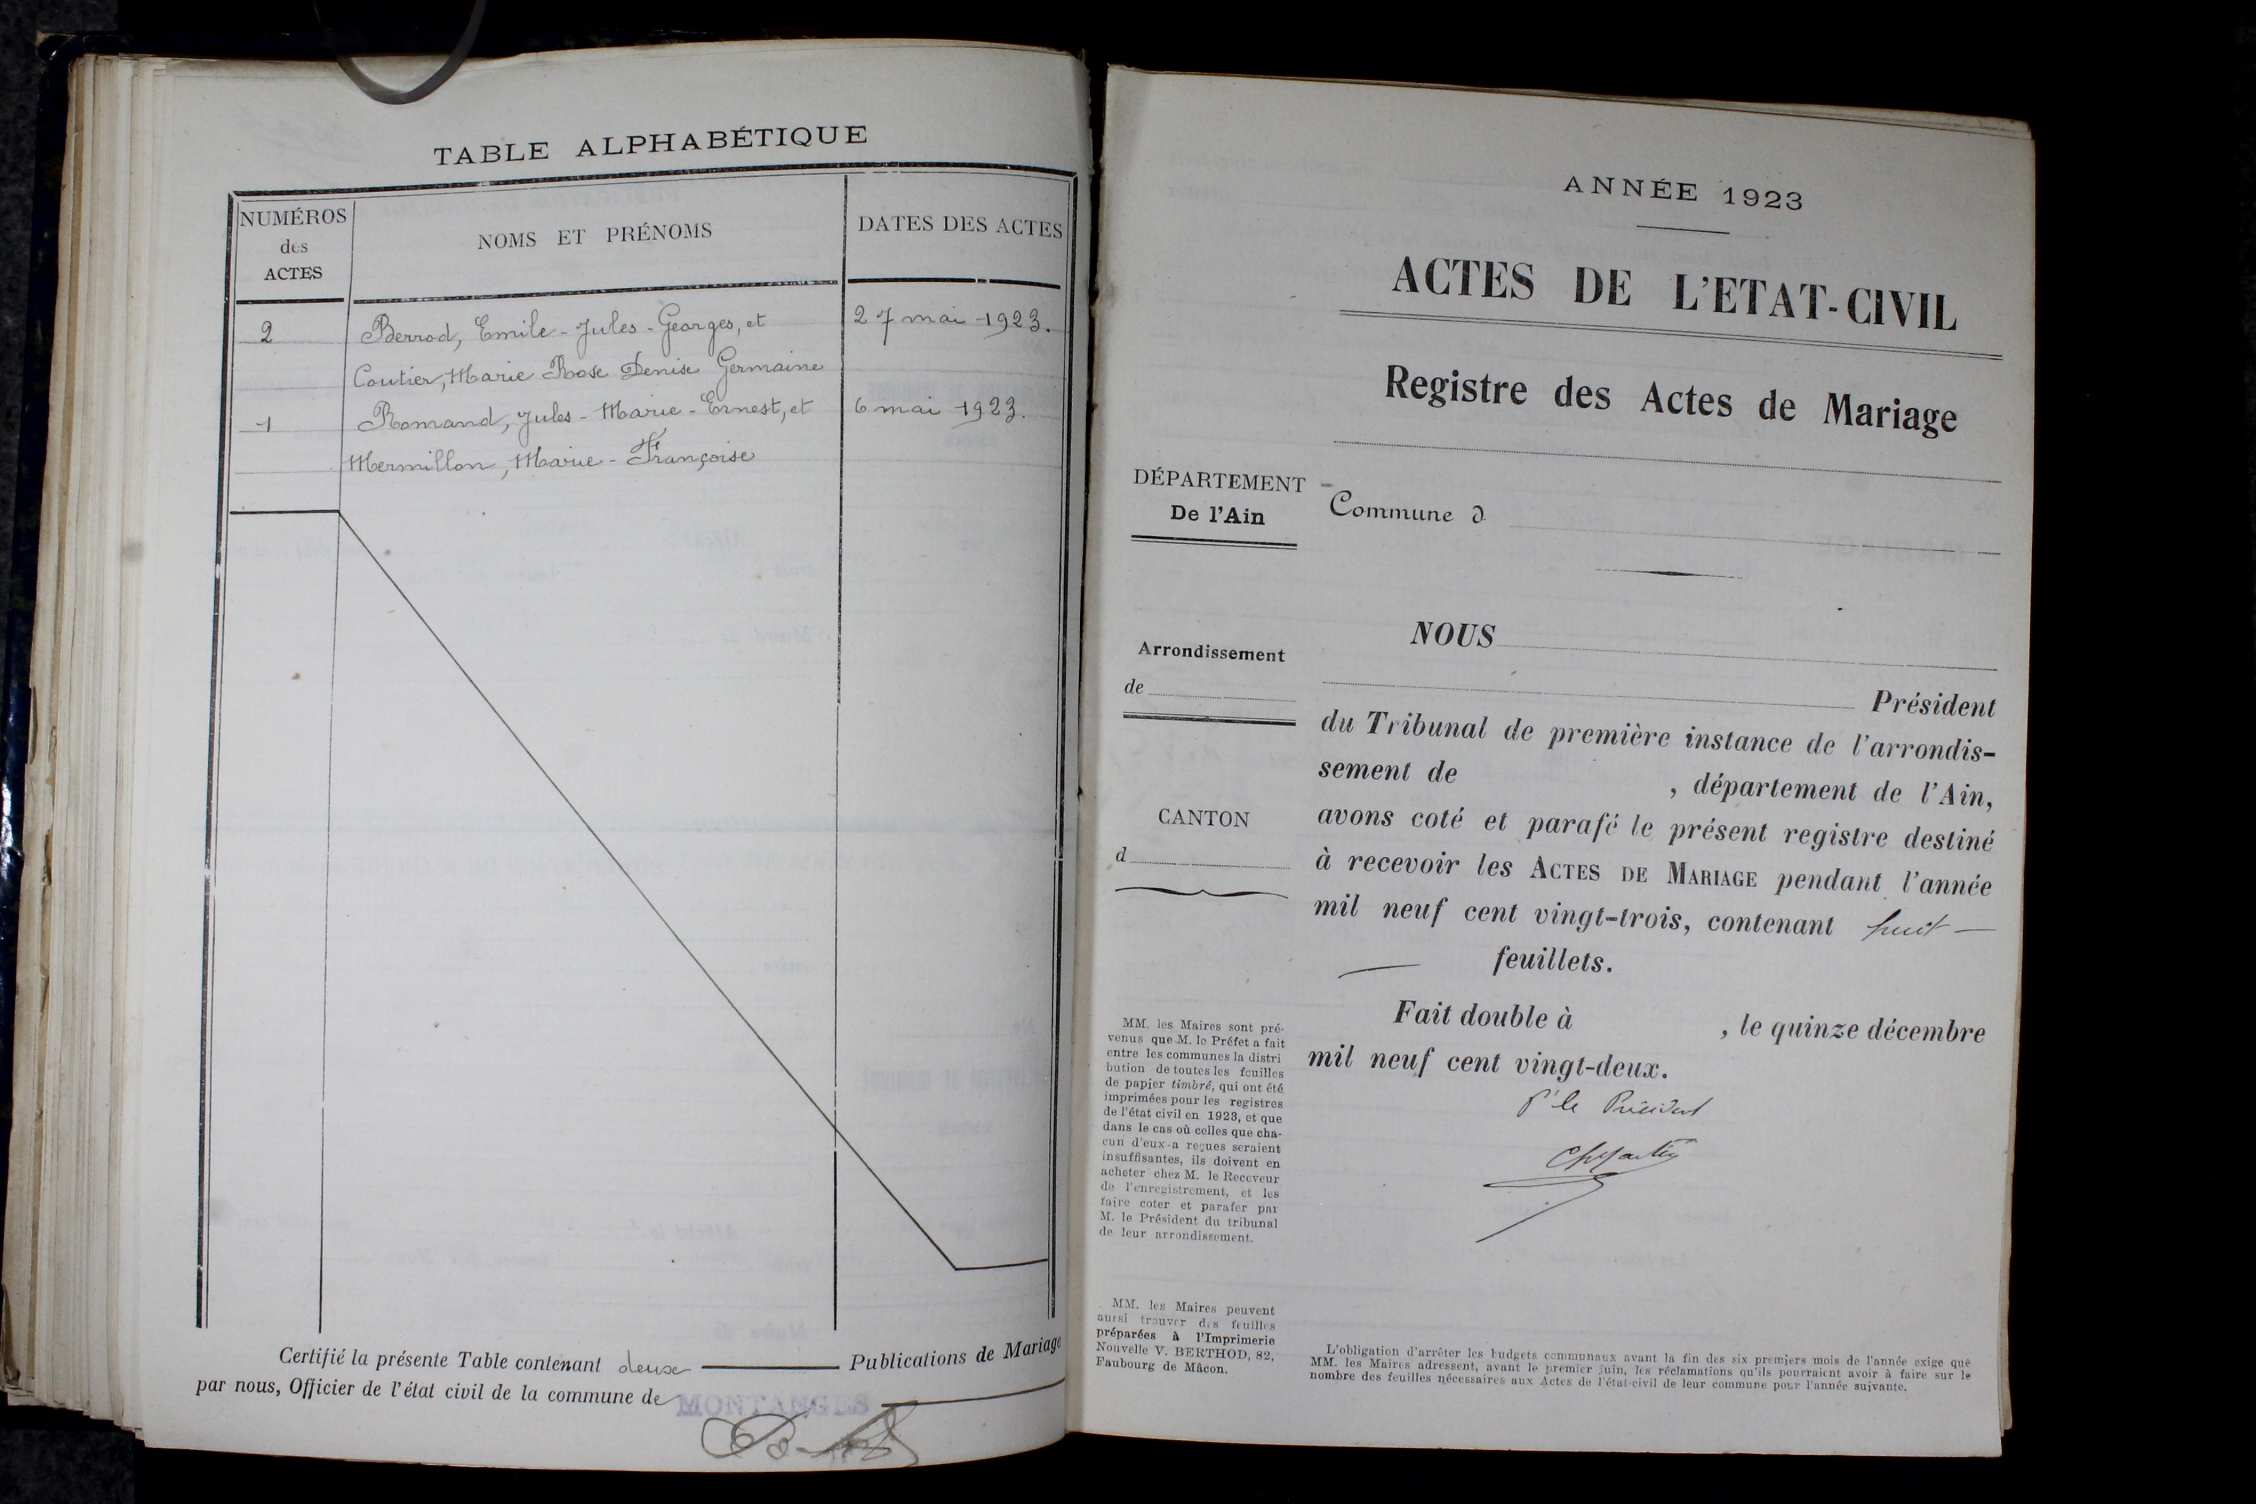 TABLE ALPHABÉTIQUE
NUMÉROS
des
ACTES
NOMS ET PRÉNOMS
DATES DES ACTES
2
Berrod, Emile-Jules-Georges, et
27 mai 1923.
Coutier, Marie Rose Denise Germaine
1
Romand, Jules-Marie-Ernest, et
6 mai 1923.
Mermillon, Marie-Françoise
Certifié la présente Table contenant deux Publications de Mariage
par nous, Officier de l'état civil de la commune de MONTANGES
ANNÉE 1923
ACTES DE L'ETAT-CIVIL
Registre des Actes de Mariage
DÉPARTEMENT
De l'Ain
Commune d
Arrondissement
de
CANTON
d
NOUS
Président
du Tribunal de première instance de l'arrondis-
sement de , département de l'Ain,
avons coté et parafé le présent registre destiné
à recevoir les ACTES DE MARIAGE pendant l'année
mil neuf cent vingt-trois, contenant huit
feuillets.
Fait double à , le quinze décembre
mil neuf cent vingt-deux.
Pr le Président
MM. les Maires sont pré-
venus que M. le Préfet a fait
entre les communes la distri
bution de toutes les feuilles
de papier timbré, qui ont été
imprimées pour les registres
de l'état civil en 1923, et que
dans le cas où celles que cha-
cun d'eux a reçues seraient
insuffisantes, ils doivent en
acheter chez M. le Receveur
de l'enregistrement, et les
faire coter et parafer par
M. le Président du tribunal
de leur arrondissement.
MM. les Maires peuvent
aussi trouver des feuilles
préparées à l'Imprimerie
Nouvelle V. BERTHOD, 82,
Faubourg de Mâcon.
L'obligation d'arrêter les budgets communaux avant la fin des six premiers mois de l'année exige que
MM. les Maires adressent, avant le premier juin, les réclamations qu'ils pourraient avoir à faire sur le
nombre des feuilles nécessaires aux Actes de l'état-civil de leur commune pour l'année suivante.